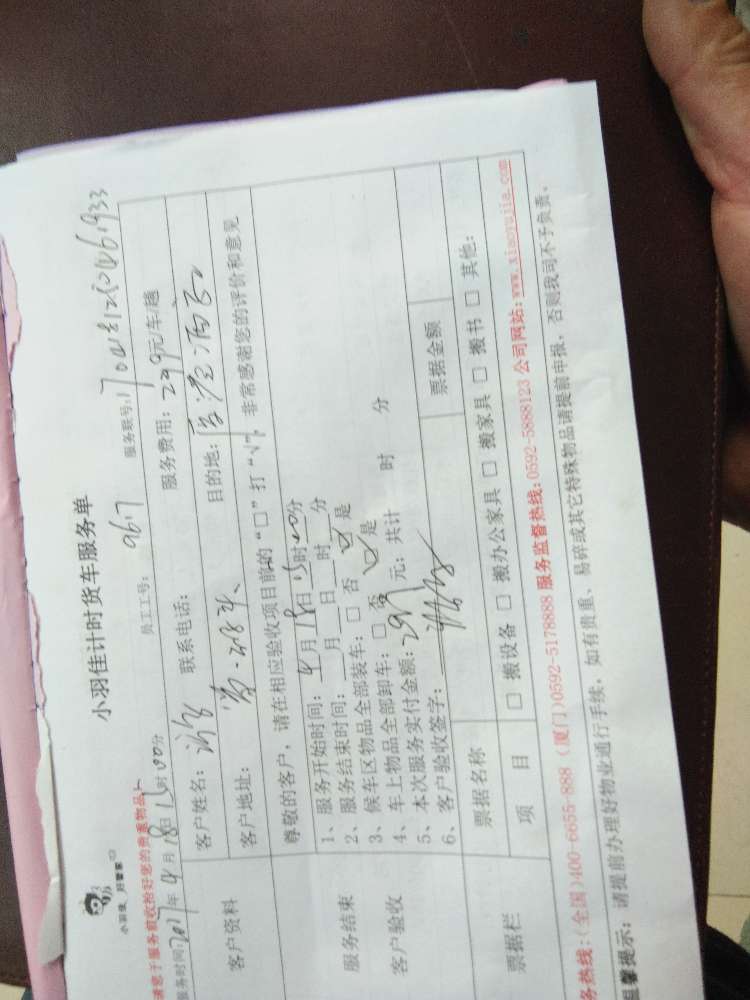 小羽佳 好管家
小羽佳计时货车服务单
请您于服务前收拾好您的贵重物品!
员工工号: 9617
服务联号:
服务时间: 2017年4月18日15时00分
服务费用: 299元/车/趟
客户资料
客户姓名:
联系电话:
客户地址:
目的地:
尊敬的客户, 请在相应验收项目前的“□”打“√”, 非常感谢您的评价和意见
服务结束
客户验收
1、服务开始时间: 4月18日15时00分
2、服务结束时间: 月 日 时 分
3、候车区物品全部装车: □ 否 ☑ 是
4、车上物品全部卸车: □ 否 ☑ 是
5、本次服务实付金额: 299元; 共计 时 分
6、客户验收签字:
票据栏
票据名称
票据金额
项 目
□ 搬设备 □ 搬办公家具 □ 搬家具 □ 搬书 □ 其他:
务热线:(全国)400-6655-888 (厦门)0592-5178888 服务监督热线:0592-5888123 公司网站:www.xiaoyujia.com
温馨提示: 请提前办理好物业通行手续, 如有贵重、易碎或其它特殊物品请提前申报, 否则我司不予负责。